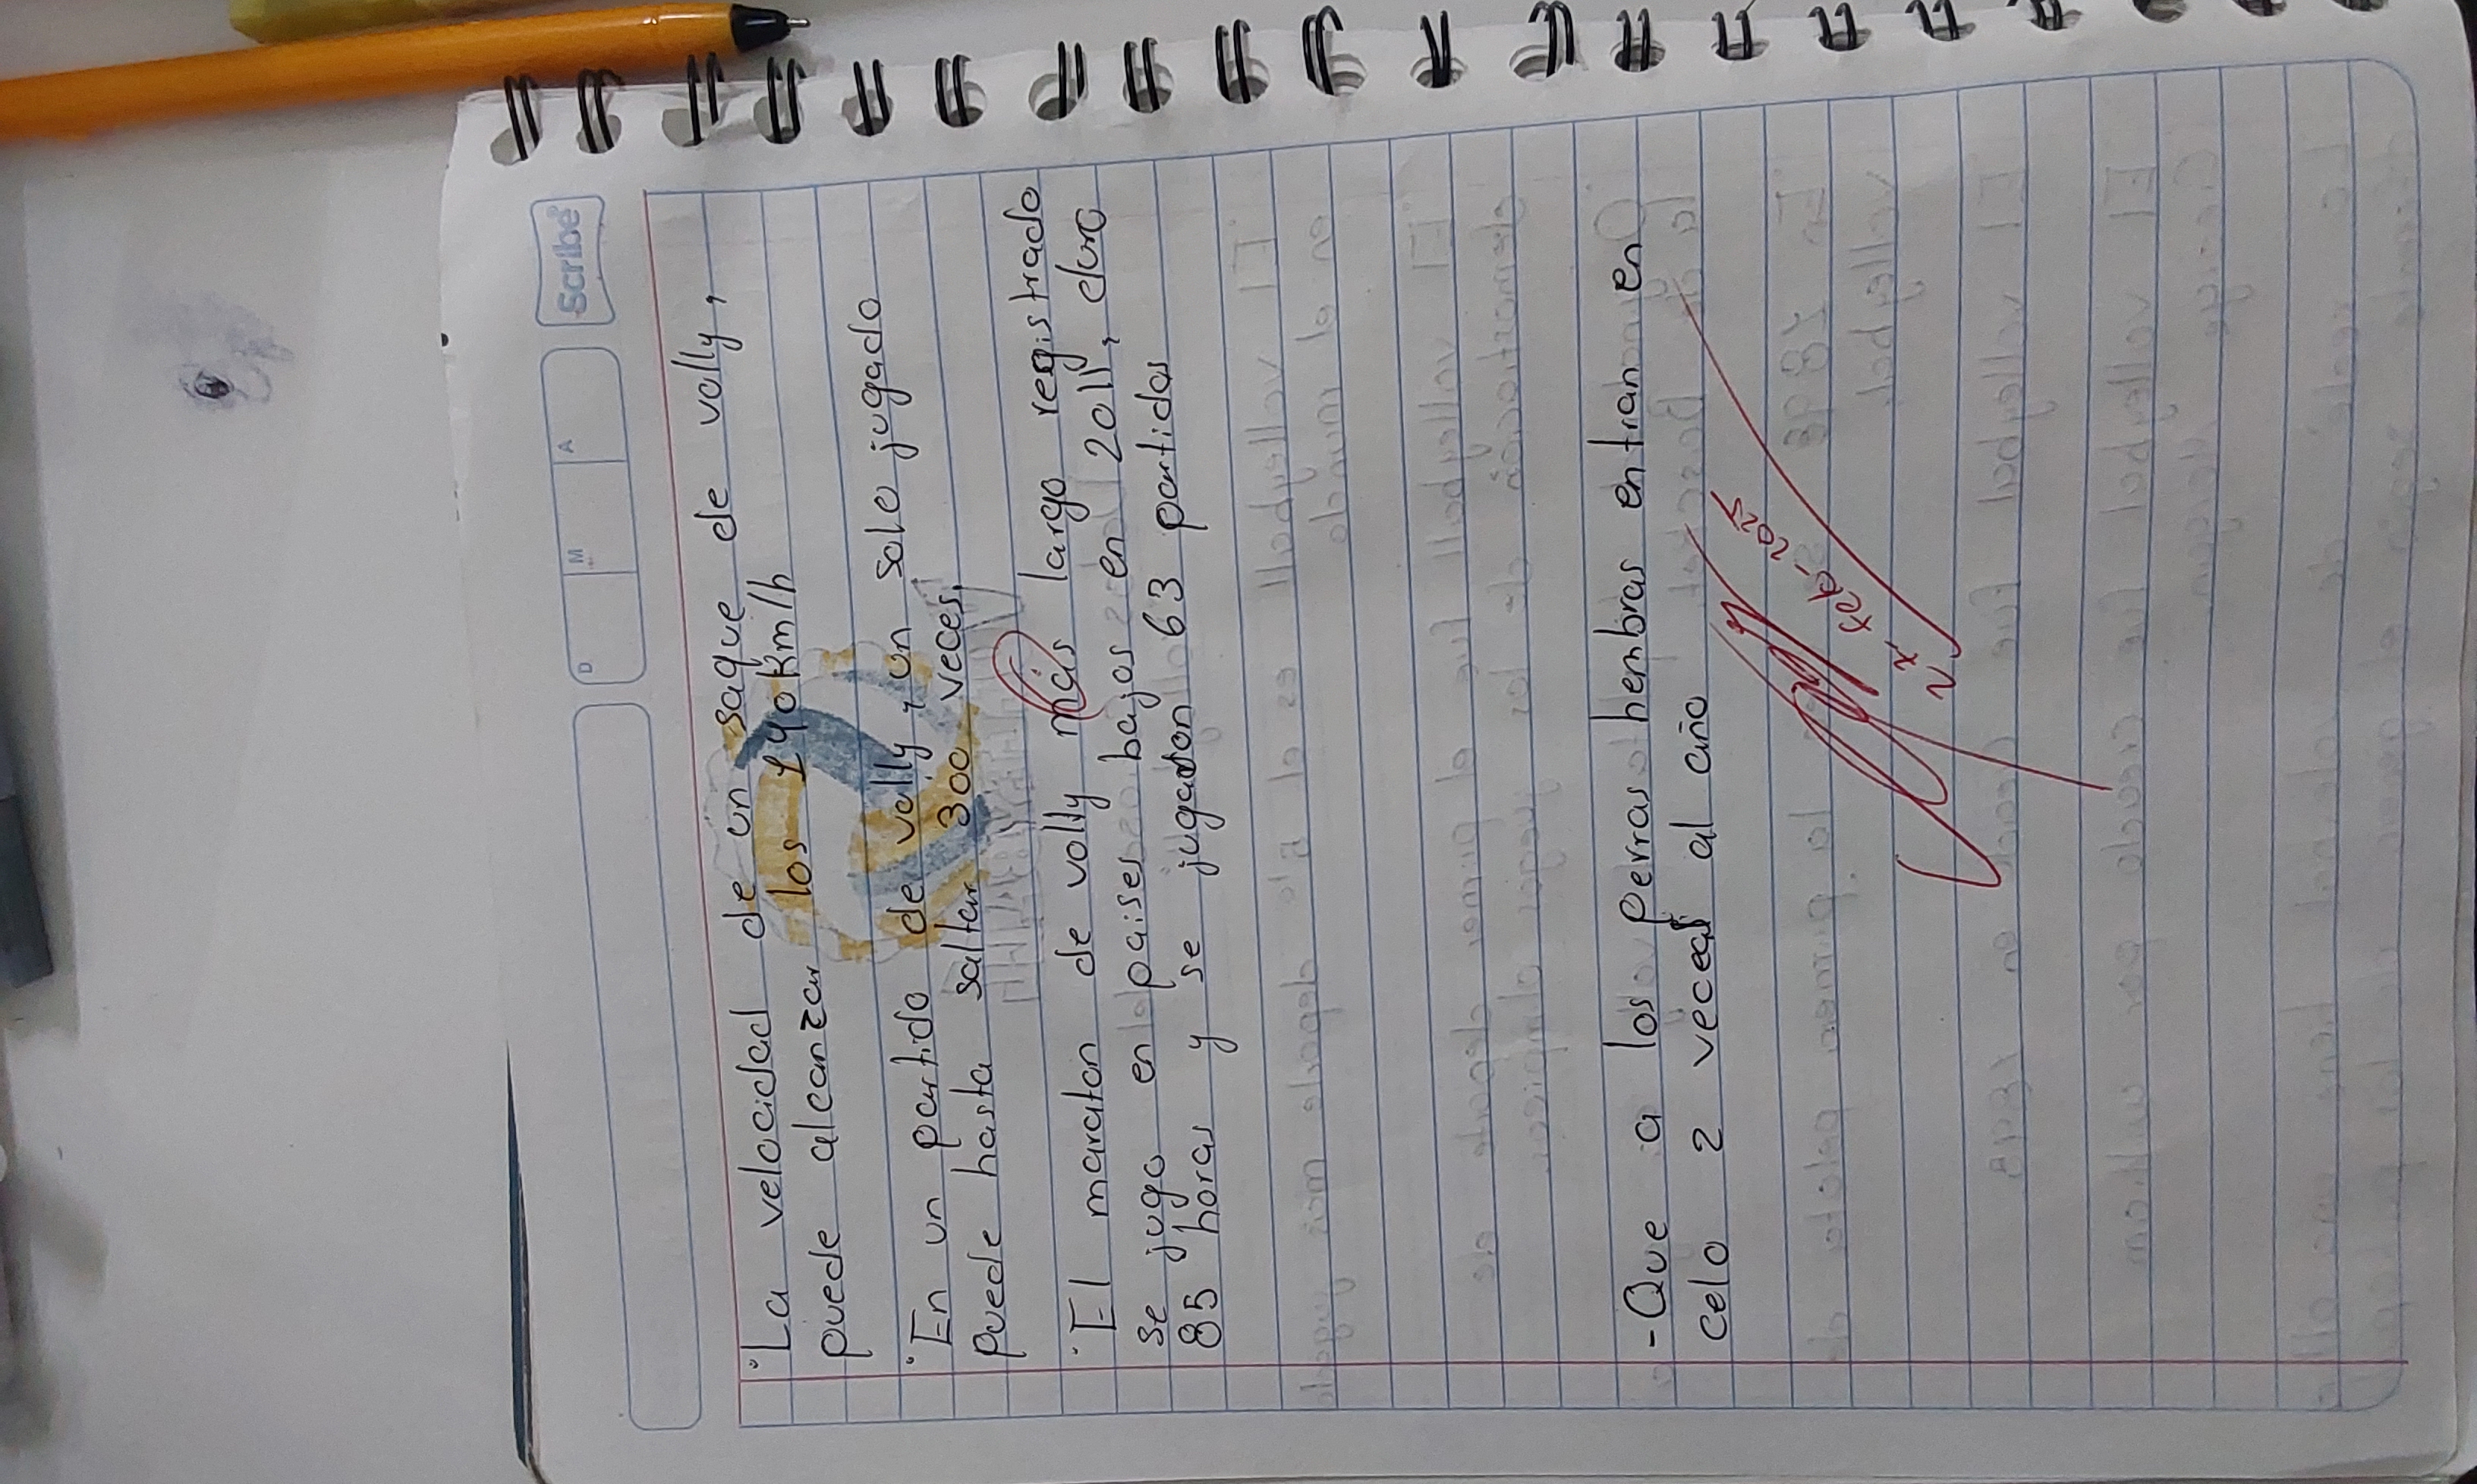 Scribe
D M A
La velocidad de un saque de volly,
puede alcanzar los 190km/h
En un partido de volly, un solo jugado
puede hasta saltar 300 veces.
El maraton de volly más largo registrado
se jugo en paises bajos en 2011, duro
85 horas y se jugaron 63 partidos
-Que a los perras hembras entran en
celo 2 veces al año